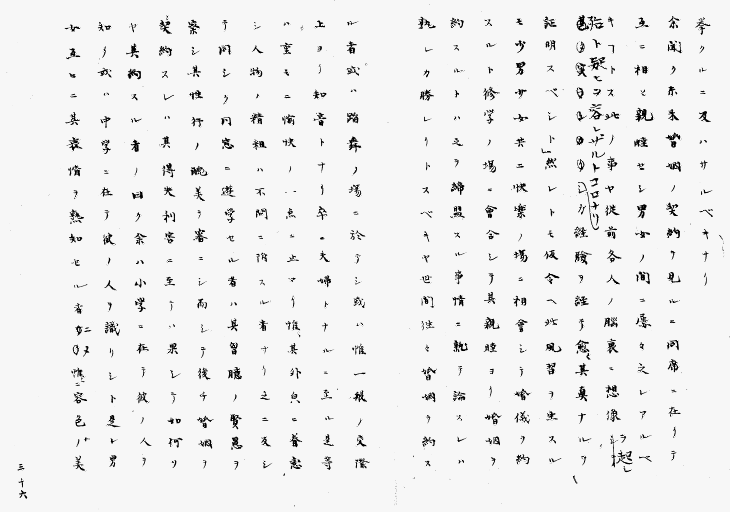 擧クルニ及ハサルベキナリ
余聞ク系未婚姻ノ契約ヲ見ルニ同席ニ在リテ
互ニ相ヒ親睦セシ男女ノ間ニ屡々之レアルベ
キコトス此ノ事ヤ從前各人ノ腦裏ニ想像ヲ起シ
殆ト疑ヒヲ容レザルトコロナリ
シカ經驗ヲ證テ愈其真ナルヲ
証明スベシト」然レトモ仮令ヘ此風習ヲ要スル
モ少男少女共ニ快樂ノ場ニ相會シテ婚儀ヲ約
スルト修學ノ場ニ會合シテ其親睦ヨリ婚姻ヲ
約スルトハ之ヲ締盟スル事情ニ就テ論スレハ
孰レカ勝レリトスベキヤ世間往々婚姻ヲ約ス
ル者或ハ踏舞ノ場ニ於テシ或ハ惟一般ノ交際
上ヨリ知音トナリ卒ニ夫婦トナルニ至ル是等
ハ重モニ愉快ノ一点ニ止マリ惟其外貌ニ眷戀
シ人物ノ精粗ハ不問ニ附スル者ナリ之ニ反シ
テ同シク同窓ニ遊学セル者ハ其智聰ノ賢愚ヲ
察シ其性行ノ醜美ヲ審ニシ而シテ後チ婚姻ヲ
契約スレハ其得失利害ニ至テハ果シテ如何ソ
ヤ其約スル者ノ曰ク余ハ小学ニ在テ彼ノ人ヲ
知リ或ハ中学ニ在テ彼ノ人ヲ識リシト是レ男
女互ヒニ其衷情ヲ熟知セル者ニ乄惟ニ容色ノ美
三十六